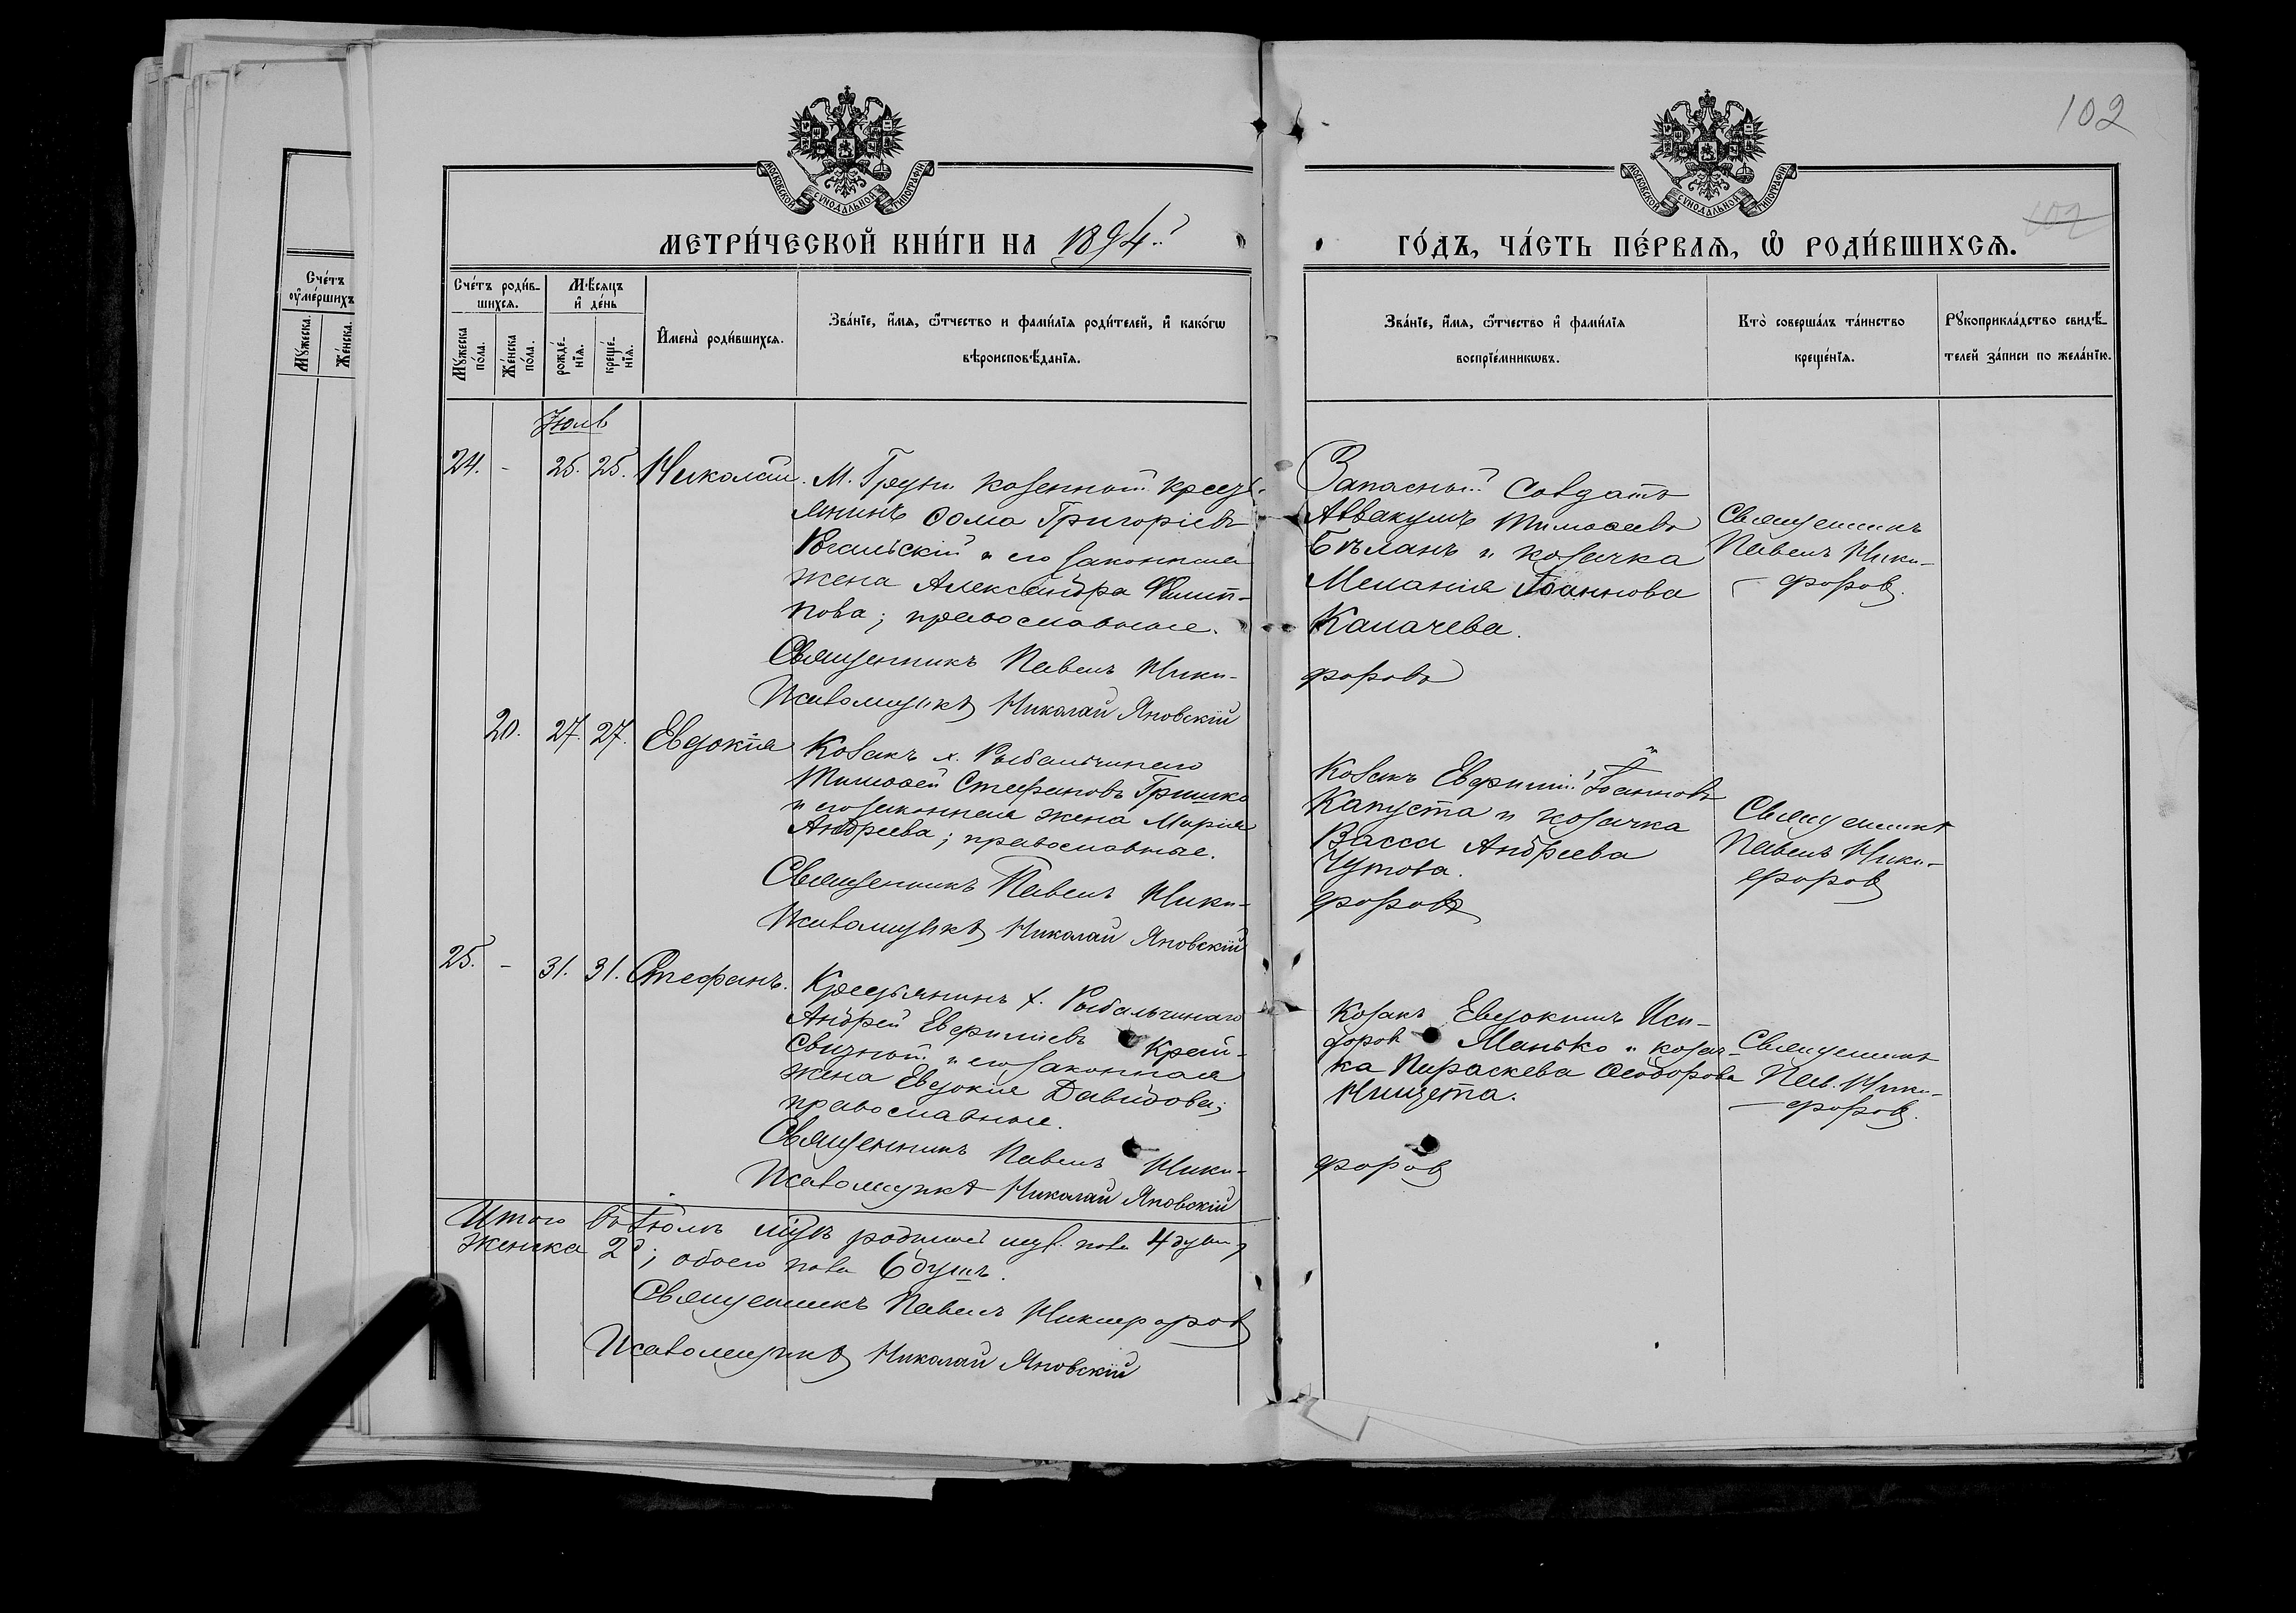 102
МОСКОВСКОЙ СѴНОДАЛЬНОЙ ТИПОГРАФІИ
МОСКОВСКОЙ СѴНОДАЛЬНОЙ ТИПОГРАФІИ
102
МЕТРИ́ЧЕСКОЙ КНИ́ГИ НА 1894й
ГО́ДЪ, ЧА́СТЬ ПЕ́РВАѦ, Ѽ РОДИ́ВШИХСѦ.
Сче́тъ оу҆ме́ршихъ
Мꙋ́жеска.
Же́нска.
Сче́тъ роди́в-
шихсѧ.
Мꙋ́жеска по́ла.
Же́нска по́ла.
Мѣ́сѧцъ
и҆ де́нь
рожде́-нїѧ.
креще́-нїѧ.
И҆мена̀ роди́вшихсѧ.
Зва́нїе, и҆́мѧ, ѻ҆́тчество и фами́лїѧ роди́телей, и҆ како́гѡ
вѣроисповѣ́данїѧ.
Зва́нїе, и҆́мѧ, ѻ҆́тчество и҆ фами́лїѧ
воспрїе́мникѡвъ.
Кто̀ соверша́лъ та́инство
креще́нїѧ.
Рꙋкоприкла́дство свидѣ́-
телей за́писи по жела́нїю.
Іюль
24. - 25. 25. Николай. М. Груни козенный кресть-
янинъ Ѳома Григоріевъ
и его законная
жена Александра Филип-
пова; православные.
Священникъ Павелъ Ники-
форовъ
Псаломщикъ Николай Яновскій
Запасный Солдатъ
Аввакумъ Тимоѳеевъ
Бѣланъ и козачка
Меланія Іоаннова
Калачева.
Священникъ
Павелъ Ники-
форовъ.
20. 27. 27. Евдокія Козакъ х. Рыбальчинаго
Тимоѳей Стефановъ Гришко
и его законная жена Марія
Андреева; православные.
Священникъ Павелъ Ники-
форовъ
Псаломщикъ Николай Яновскій
Козакъ Евфимій Іоанновъ
Капуста и козачка
Васса Андреева
Чутова.
Священникъ
Павелъ Ники-
форовъ
25. - 31. 31. Стефанъ. Крестьянинъ х. Рыбальчинаго
Андрей Евфиміевъ Край-
свитный и его законная
жена Евдокія Давидова;
православные.
Священникъ Павелъ Ники-
форовъ
Псаломщикъ Николай Яновскій
Козакъ Евдокимъ Иси-
доровъ Манько и козач-
ка Параскева Ѳеодорова
Нищета.
Священникъ
Пав. Ники-
форовъ.
Итого въ Іюлѣ м-цѣ муж. пола 4 души,
женска 2; обоего пола 6 душъ.
Священникъ Павелъ Никифоровъ
Псаломщикъ Николай Яновскій